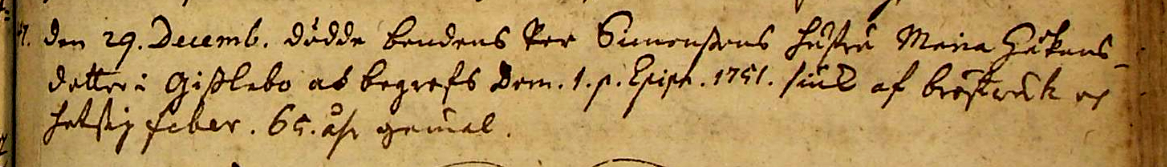 den 29. Decemb. dödde bondens Per Simonssons hustru Maria Håkans-
dotter i Gisslebo och begrofs Dom. 1. p. Epiph. 1751. siuk af bröstwerk och
hetsig feber. 65. åhr gamal.